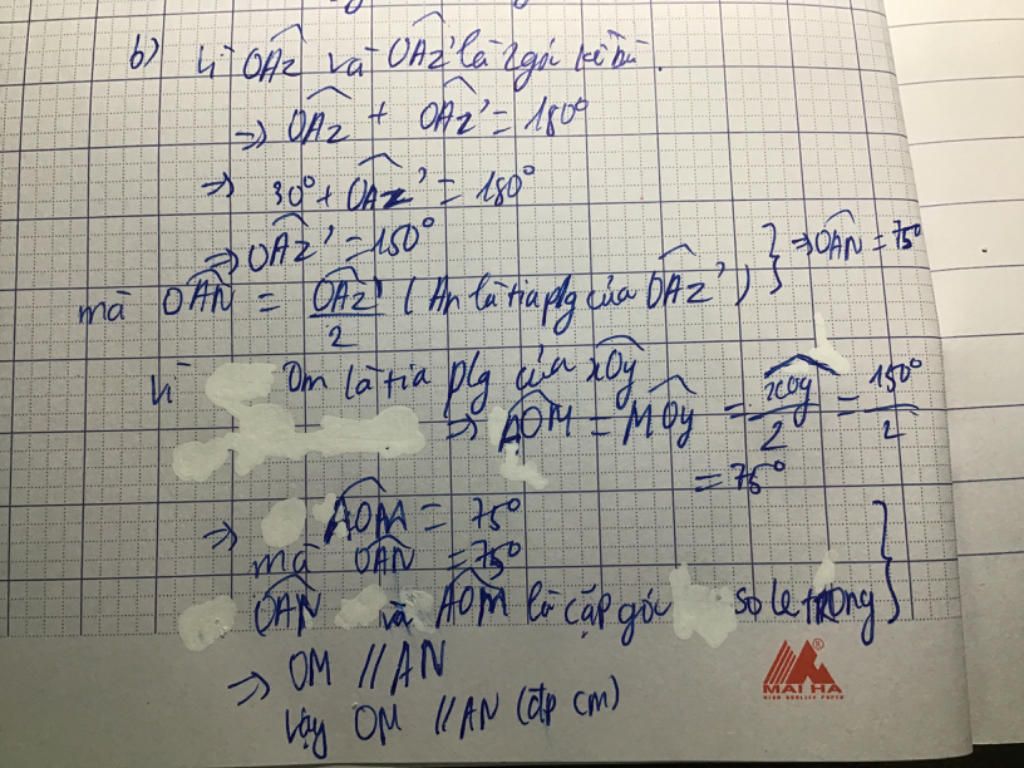 b) Vì OAz và OAz' là 2 góc kề bù.
=> OAz + OAz' = 180°
=> 30° + OAz' = 180°
=> OAz' = 150°
mà OAN = OAz'/2 (An là tia plg của OAz') } => OAN = 75°
Vì Om là tia plg của xOy
=> AOM = MOy = xOy/2 = 150°/2
= 75°
=> AOM = 75°
mà OAN = 75°
OAN và AOM là cặp góc so le trong }
=> OM // AN
Vậy OM // AN (đp cm)
MAI HA
HIGH QUALITY PAPER